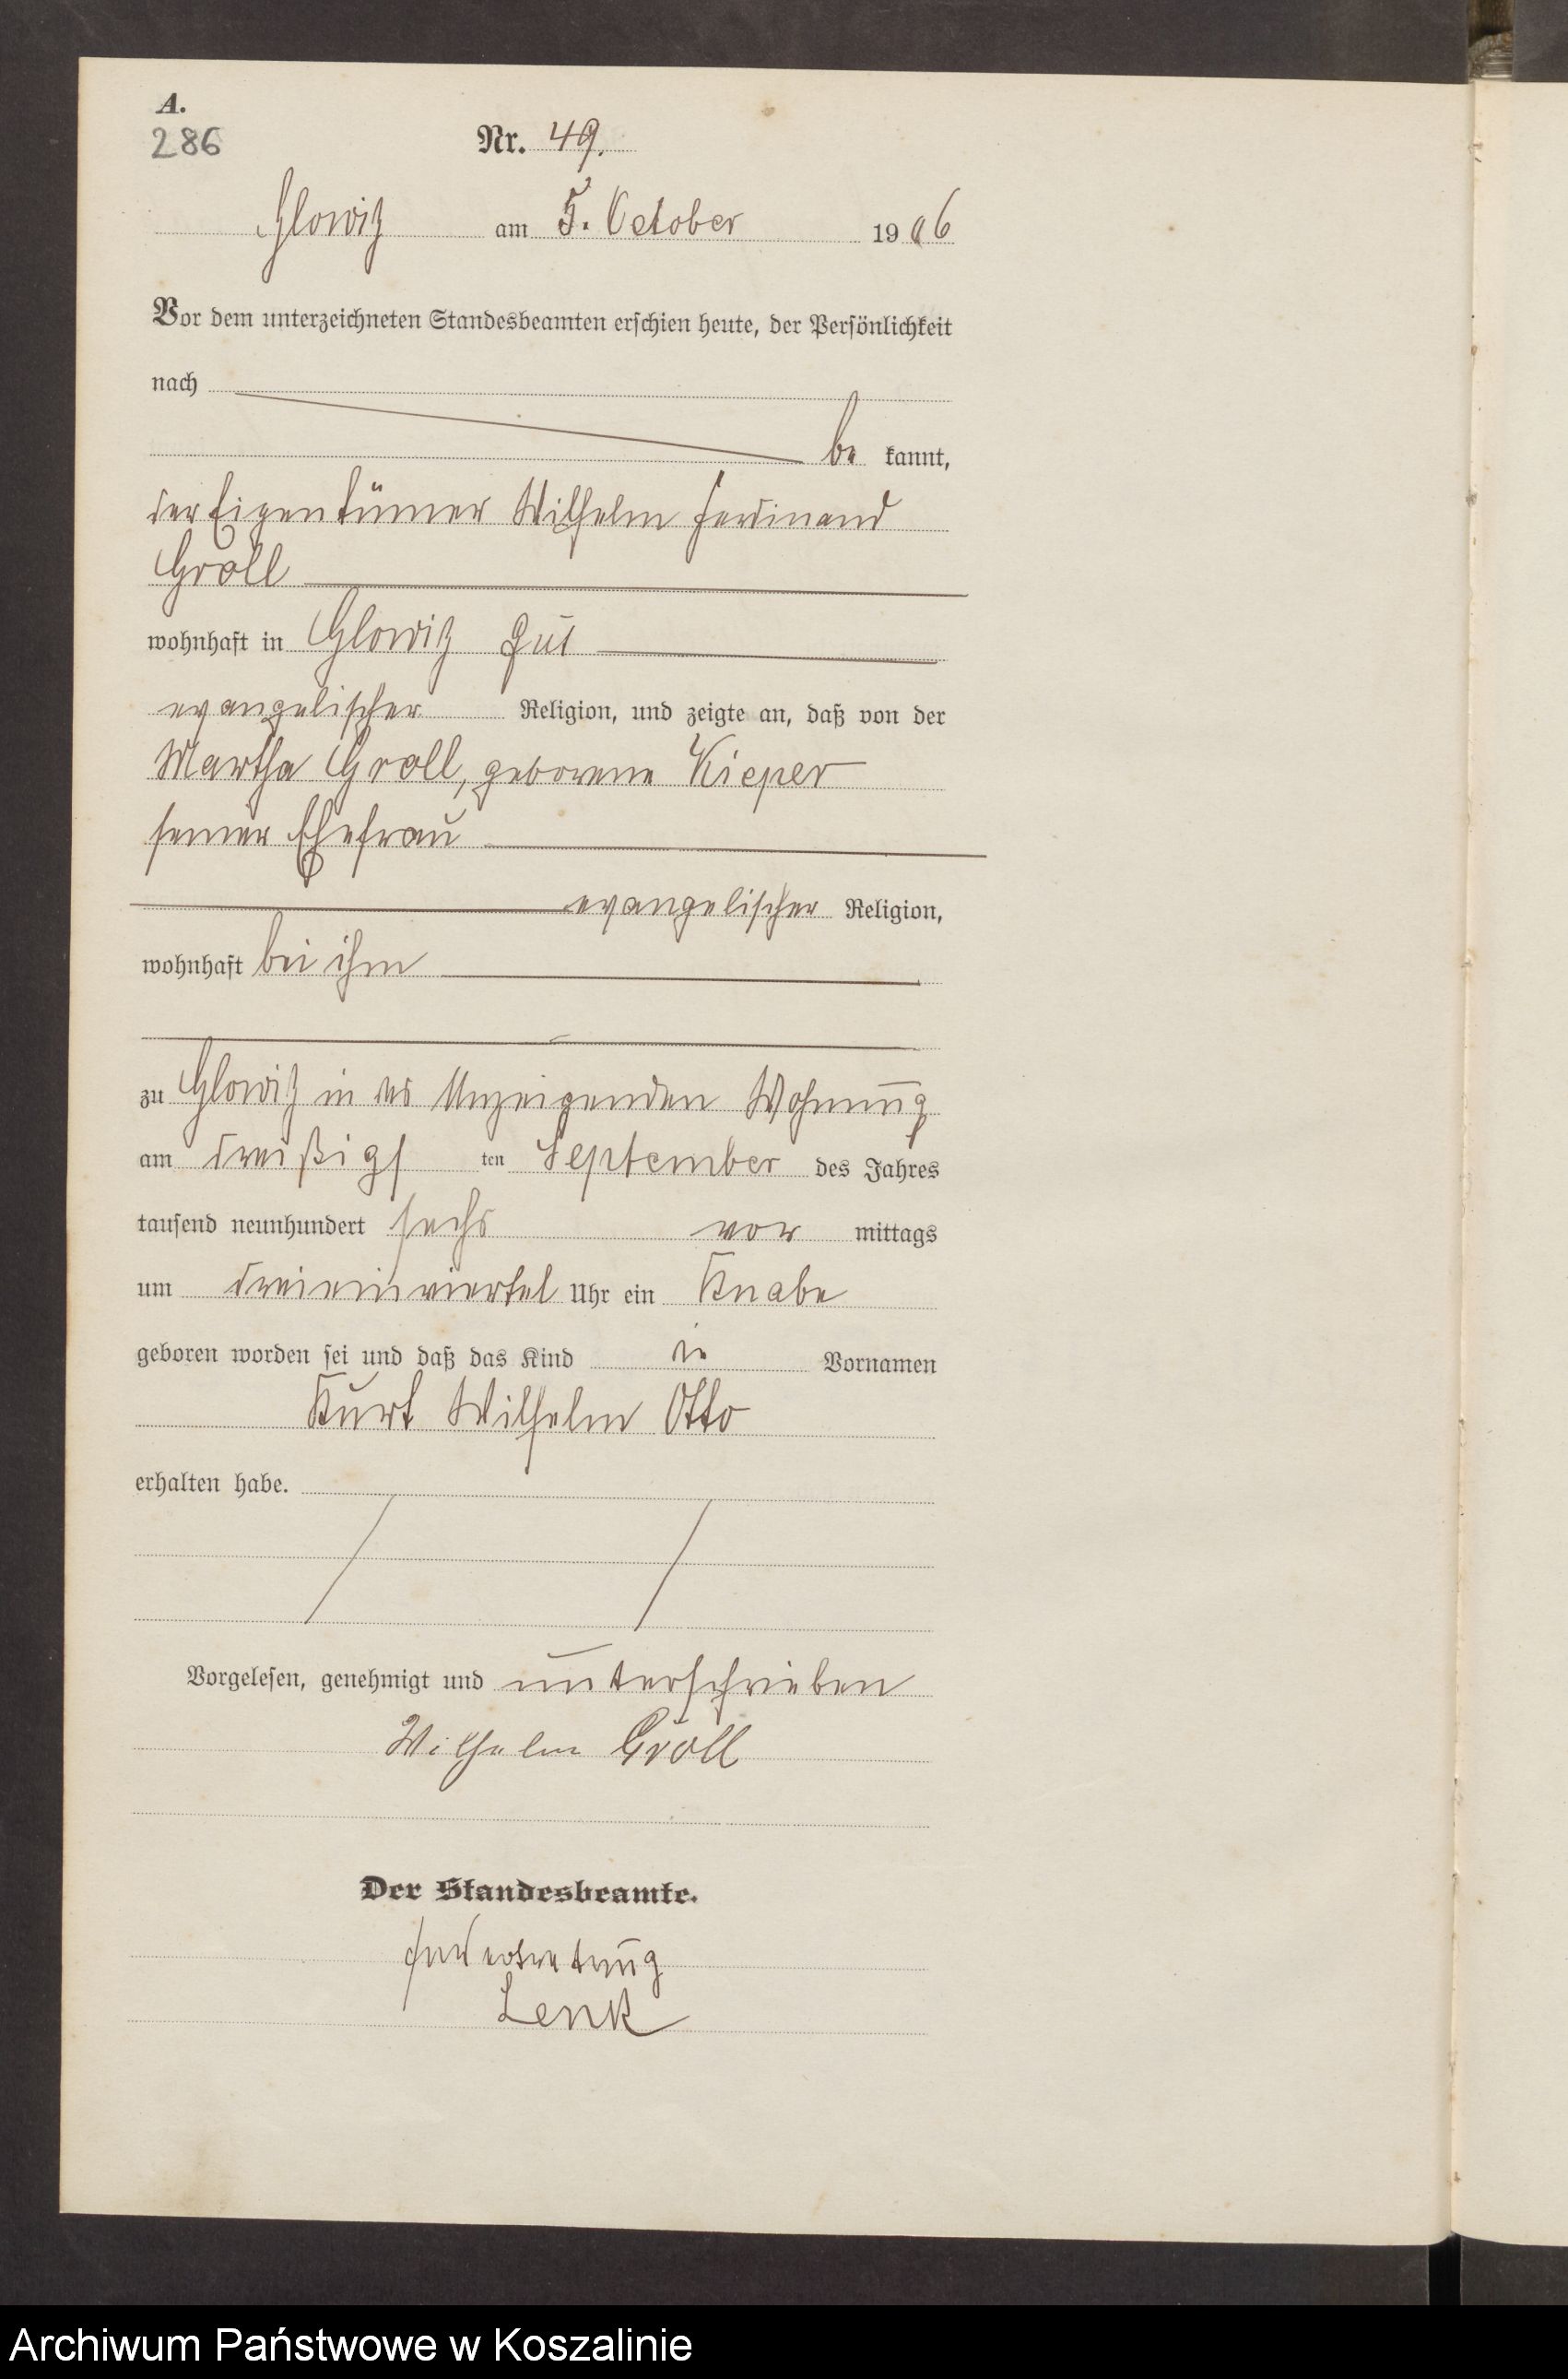 A.
286
Nr. 49.
Glowitz am 5. October 1906
Vor dem unterzeichneten Standesbeamten erschien heute, der Persönlichkeit
nach
be kannt,
der Eigentümer Wilhelm Ferdinand
Groll
wohnhaft in Glowitz Gut
evangelischer Religion, und zeigte an, daß von der
Martha Groll, geborene Kieper
seiner Ehefrau
evangelischer Religion,
wohnhaft bei ihm
zu Glowitz in des Anzeigenden Wohnung
am dreißigs ten September des Jahres
tausend neunhundert sechs vor mittags
um dreieinviertel Uhr ein Knabe
geboren worden sei und daß das Kind die Vornamen
Kurt Wilhelm Otto
erhalten habe.
Vorgelesen, genehmigt und unterschrieben
Wilhelm Groll
Der Standesbeamte.
In Vertretung
Lenk
Archiwum Państwowe w Koszalinie